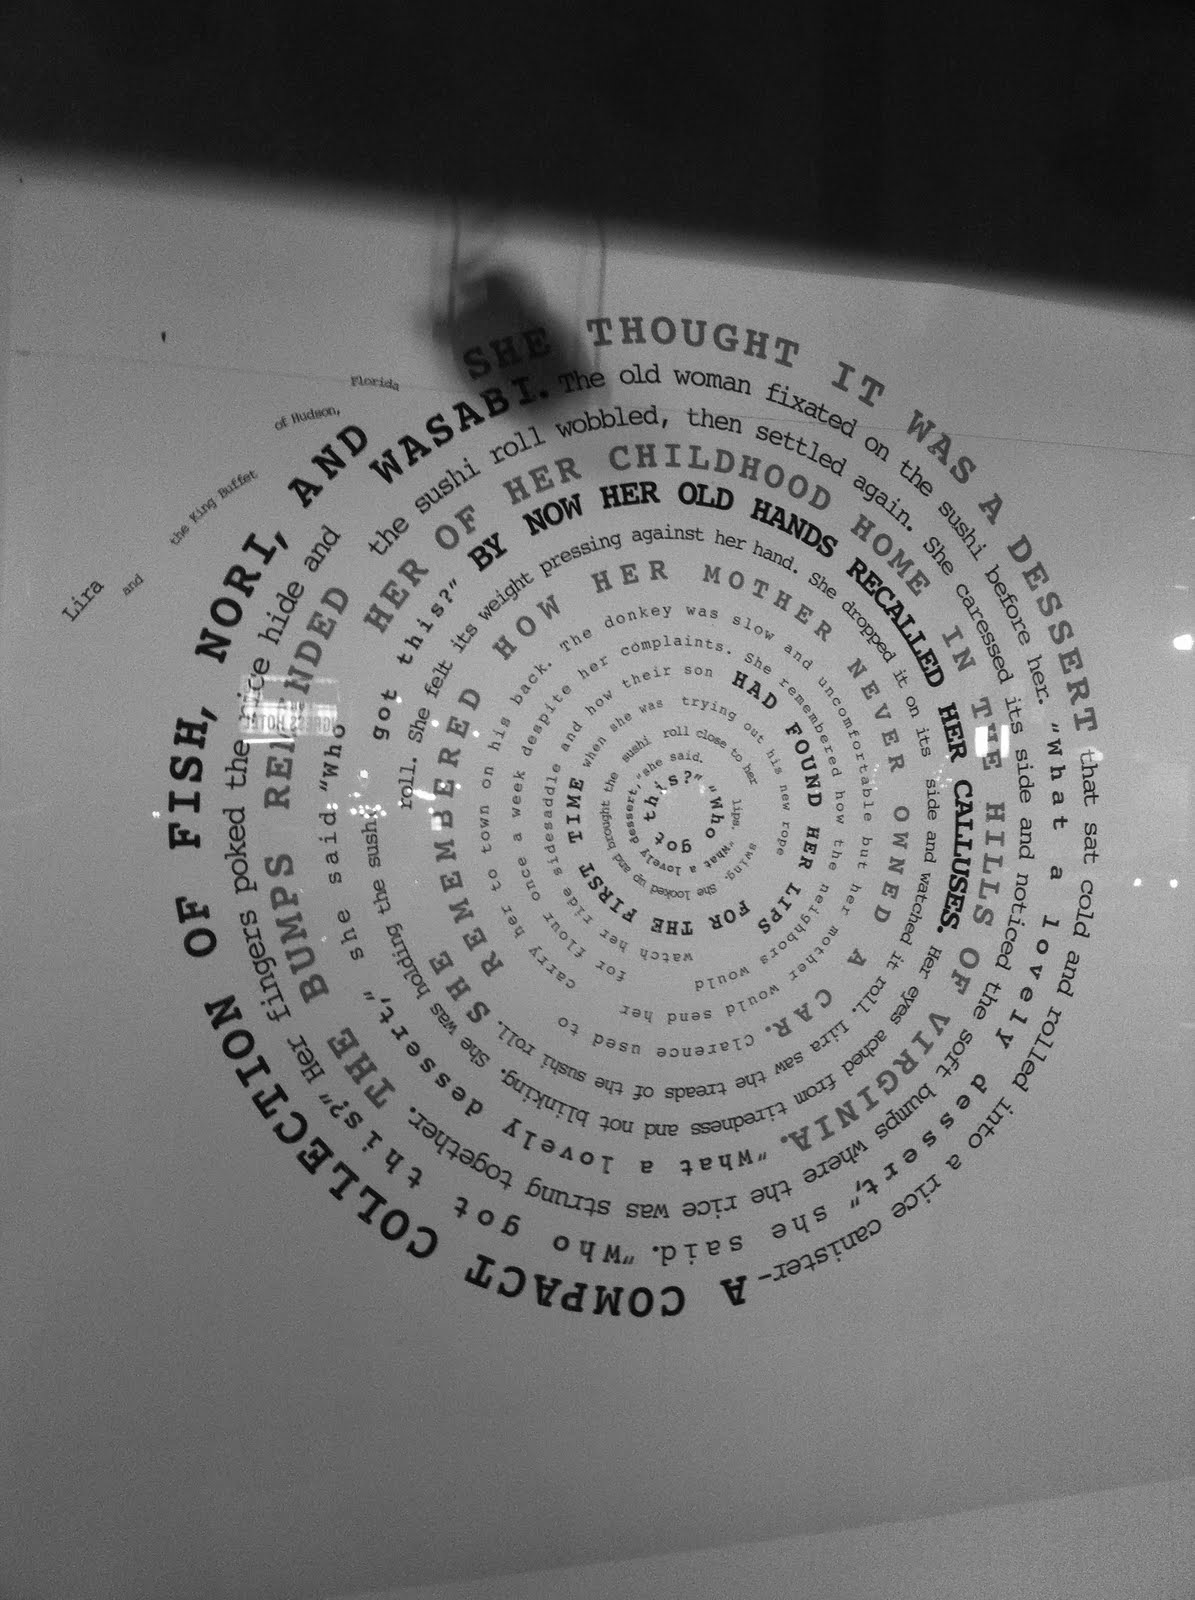 Lira
and
the King Buffet
of Hudson,
Florida
SHE THOUGHT IT WAS A DESSERT that sat cold and rolled into a rice canister-A COMPACT COLLECTION OF FISH, NORI, AND
WASABI. The old woman fixated on the sushi before her. "What a lovely dessert," she said. "Who got this?" Her fingers poked the rice hide and
the sushi roll wobbled, then settled again. She caressed its side and noticed the soft bumps where the rice was strung together. THE BUMPS REMINDED
HER OF HER CHILDHOOD HOME IN THE HILLS OF VIRGINIA. "What a lovely dessert," she said. "Who
got this?" BY NOW HER OLD HANDS RECALLED HER CALLUSES. Her eyes ached from tiredness and not blinking. She was holding the sushi
roll. She felt its weight pressing against her hand. She dropped it on its side and watched it roll. Lira saw the treads of the sushi roll. SHE REMEMBERED
HOW HER MOTHER NEVER OWNED A CAR. Clarence used to carry her to town on his back.
The donkey was slow and uncomfortable but her mother would send her for flour once a week despite her complaints.
She remembered how the neighbors would watch her ride sidesaddle and how their son
HAD FOUND HER LIPS FOR THE FIRST TIME when she was trying out his new rope swing.
She looked up and brought the sushi roll close to her lips. "What a lovely dessert," she said. "Who got this?"